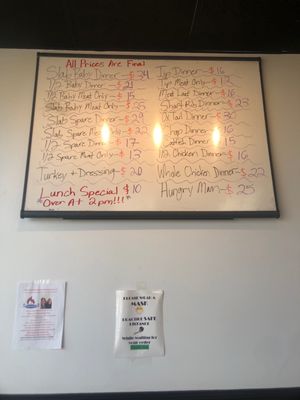 All Prices Are Final
Slab Baby Dinner - $34
1/2 Baby Dinner - $21
1/2 Baby Meat Only - $15
Slab Baby Meat Only - $25
Slab Spare Dinner - $29
Slab Spare Meat Only - $22
1/2 Spare Dinner - $17
1/2 Spare Meat Only - $13
Turkey + Dressing - $20
Lunch Special $10
*Over At 2pm!!!*
Tip Dinner - $16
Tip Meat Only - $12
Meat Loaf Dinner - $16
Short Rib Dinner - $23
Ox Tail Dinner - $30
Chop Dinner - $16
Catfish Dinner - $15
1/2 Chicken Dinner - $16
Whole Chicken Dinner - $22
Hungry Man - $25
PLEASE WEAR A
MASK
PRACTICE SAFE
DISTANCE
While waiting for
your order